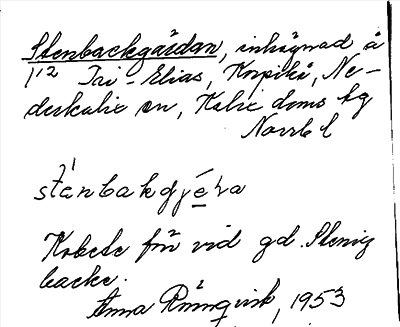 Stenbackgärdan, inhägnad å
1 12 Tri-Elias, Korpikå, Ne-
derkalix sn, Kalix doms hg
Norrb l
stànbakgjæ̀ɖa
Kobete för vid gd. Stenig
backe.
Anna Rönnqvik, 1953